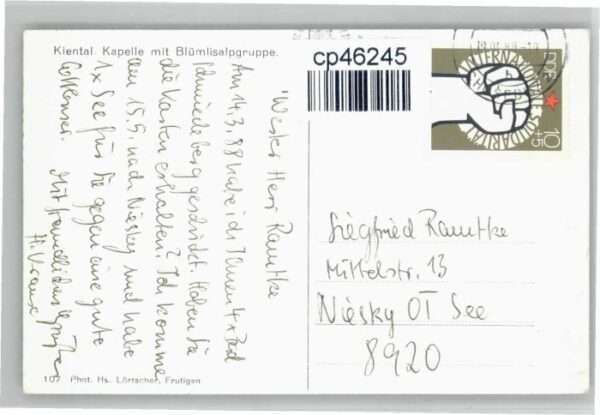 Kiental. Kapelle mit Blümlisalpgruppe.
cp46245
Werter Herr Ramtke
Am 14.3.88 habe ich Ihnen 4 x Bad
Schmiedeberg geschickt. Haben Sie
die Karten erhalten? Ich komme
am 15.5. nach Niesky und habe
1x See für Sie gegen eine gute
Mit freundlichen Grüßen
H. Krause
15 Phot. Hs. Lörtscher, Frutigen
DDR
INTERNATIONALE SOLIDARITÄT
10+5
Siegfried Ramtke
Mittelstr. 13
Niesky OT See
8920